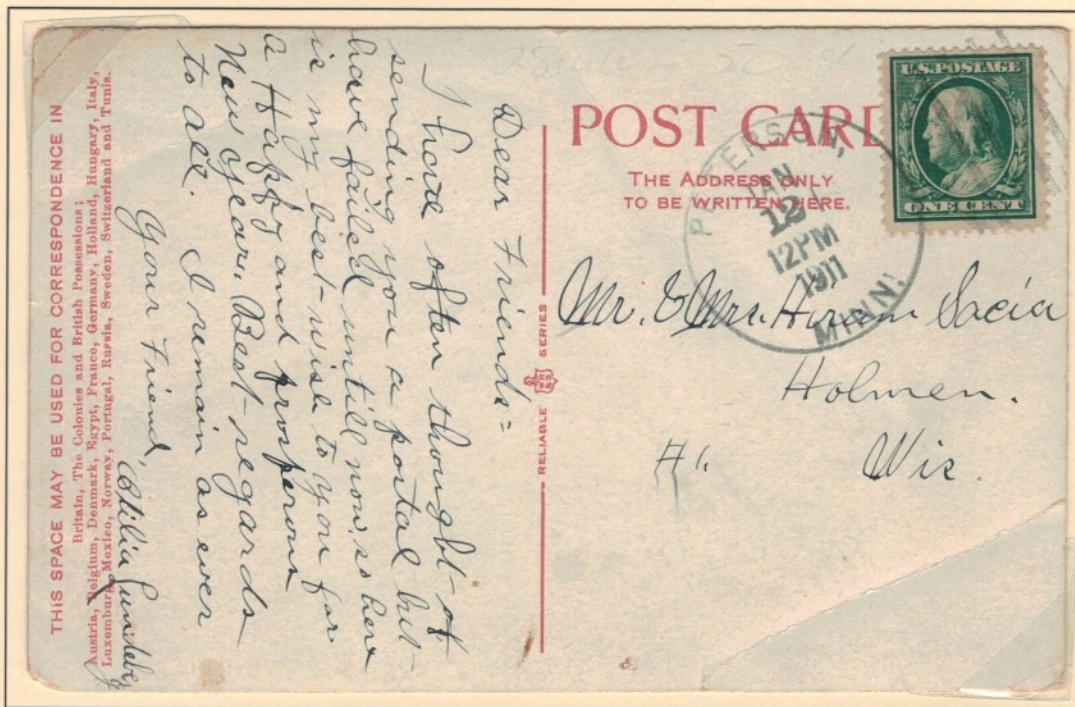 THIS SPACE MAY BE USED FOR CORRESPONDENCE IN
Britain, The Colonies and British Possessions;
Austria, Belgium, Denmark, Egypt, France, Germany, Holland, Hungary, Italy,
Luxemburg, Mexico, Norway, Portugal, Russia, Sweden, Switzerland and Tunis.
Dear Friends=
I have often thought of
sending you a postal but
have failed untill now, so here
is my best wise to you for
a Happy and prosperous
New year, Best regards
to all. I remain as ever
Your Friend,
RELIABLE SERIES
POST CARD
THE ADDRESS ONLY
TO BE WRITTEN HERE.
U.S. POSTAGE
ONE CENT
JAN
12
12PM
1911
MINN.
Mr. & Mrs. Hiram Sacia
Holmen.
#1. Wis.